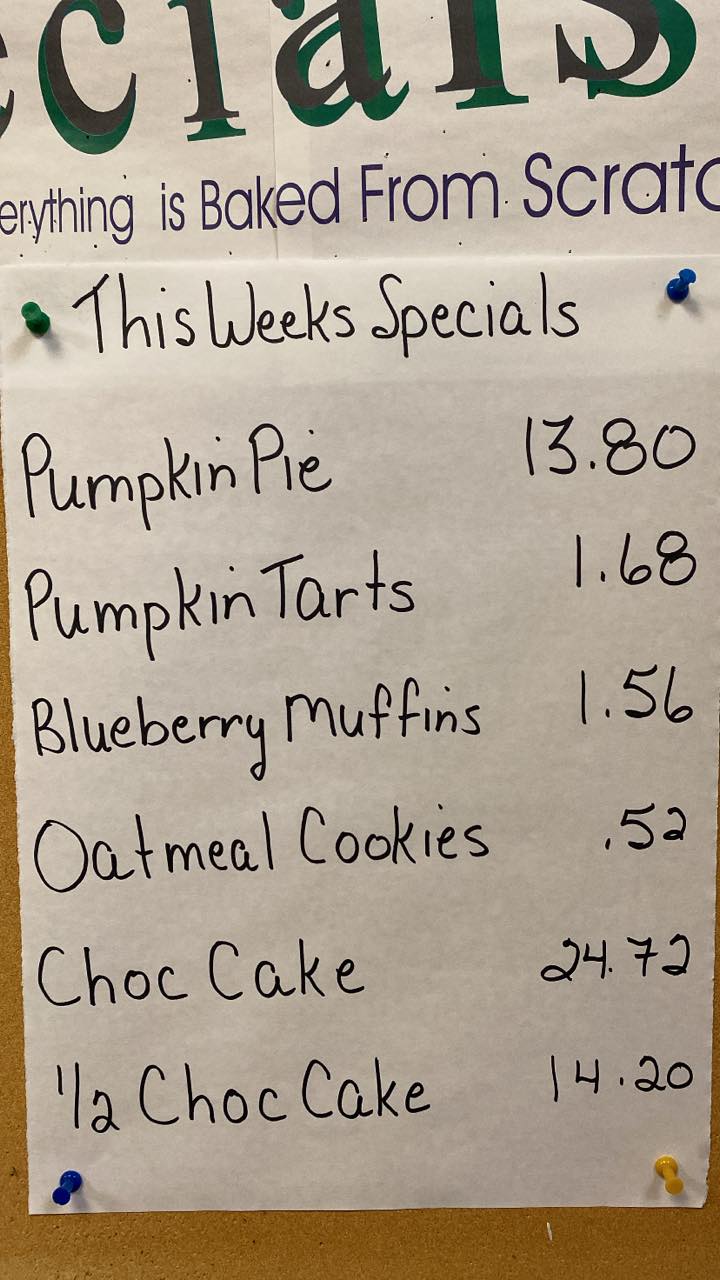 ecials
erything is Baked From Scratc
This Weeks Specials
Pumpkin Pie 13.80
Pumpkin Tarts 1.68
Blueberry Muffins 1.56
Oatmeal Cookies .52
Choc Cake 24.72
1/2 Choc Cake 14.20